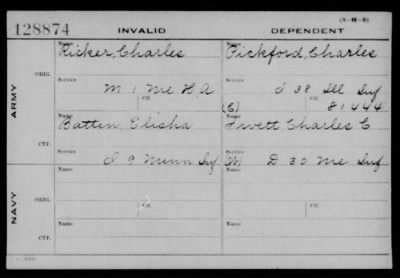 (3-H-3)
128874 INVALID DEPENDENT
Name Name
Ricker, Charles Pickford, Charles
ORIG. Service Service
M 1 Me H A I 38 Ill Inf
Ctf. (C) Ctf. 81444
ARMY
Name Name
Batten, Elisha Charles C
CTF. Service Service
I 9 Minn Inf D 30 Me Inf
Name Name
ORIG. Ctf. Ctf.
NAVY
Name Name
CTF.